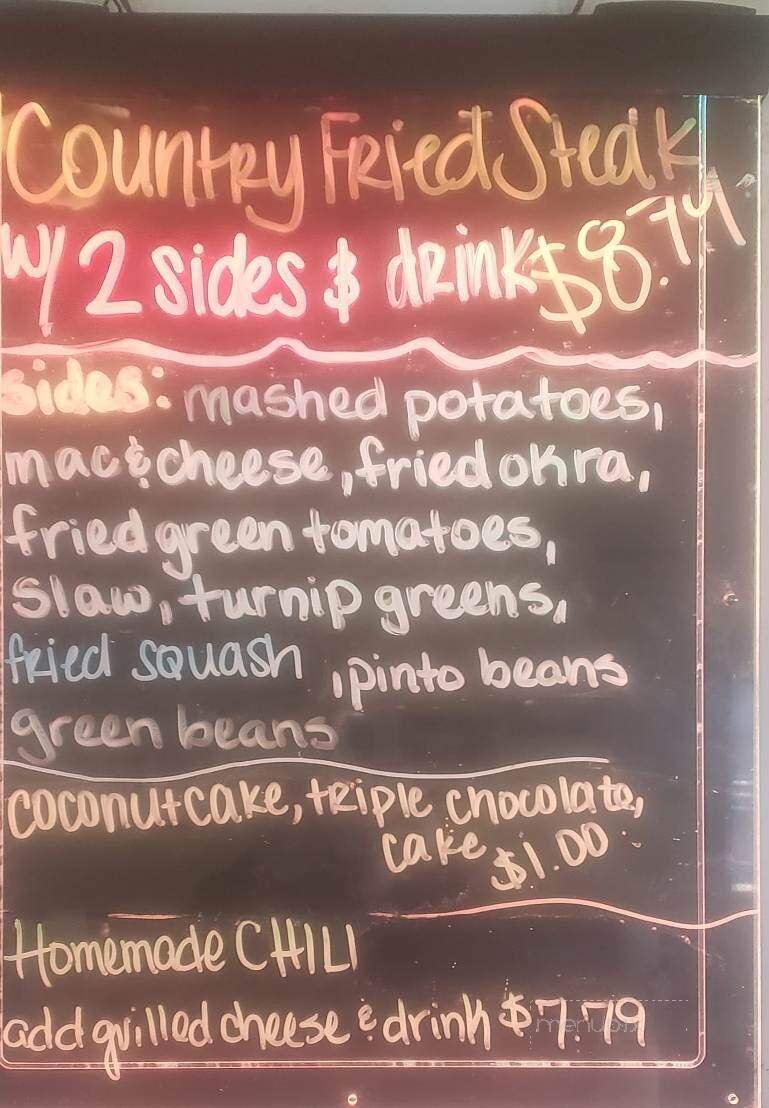 Country Fried Steak
w/ 2 sides & drink
sides: mashed potatoes,
mac & cheese, fried okra,
fried green tomatoes,
slaw, turnip greens,
fried squash, pinto beans
green beans
coconut cake, triple chocolate,
cake $1.00
Homemade CHILI
add grilled cheese & drink $7.79
menupix